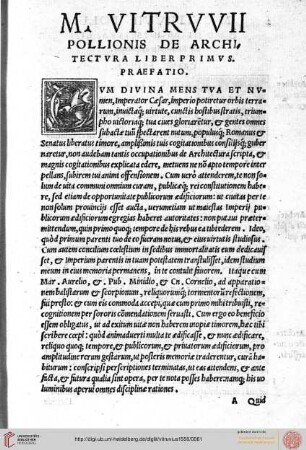 M. VITRVVII
POLLIONIS DE ARCHI,
TECTVRA LIBER PRIMVS.
PRAEFATIO.
VM DIVINA MENS TVA ET NV
men, Imperator Cæsar, imperio potiretur orbis terra
rum, inuictaq; uirtute, cunctis hostibus stratis, trium
pho uictoriaq; tua ciues gloriarētur, & gentes omnes
subactæ tuū spectarent nutum, populusq; Romanus &
Senatus liberatus timore, amplissimis tuis cogitationibus consilijsq; guber
naretur, non audebam tantis occupationibus de Architectura scripta, &
magnis cogitationibus explicata edere, metuens ne nō apto tempore inter
pellans, subirem tui animi offensionem. Cum uero attenderem, te non so
lum de uita communi omnium curam, publicæq; rei constitutionem habe
re, sed etiam de opportunitate publicorum ædificiorum: ut ciuitas per te
non solum prouincijs esset aucta, uerumetiam ut maiestas Imperij pu
blicorum ædificiorum egregias haberet autoritates: non putaui præter
mittendum, quin primo quoq; tempore de his rebus ea tibi ederem. Ideo,
quòd primum parenti tuo de eo fueram notus, & eius uirtutis studiosus.
Cum autem concilium cœlestium in sedibus immortalitatis eum dedicauis
set, & imperium parentis in tuam potestatem transtulisset, idem studium
meum in eius memoria permanens, in te contulit fauorem. Itaque cum
Mar. Aurelio, & Pub. Minidio, & Cn. Cornelio, ad apparatio
nem balistarum & scorpionum, reliquorumq; tormentorū refectionem,
fui præsto: & cum eis commoda accepi, quæ cum primo mihi tribuisti, re
cognitionem per sororis cōmendationem seruasti. Cum ergo eo beneficio
essem obligatus, ut ad exitum uitæ non haberem inopiæ timorem, hæc tibi
scribere cœpi: quòd animaduerti multa te ædificasse, & nunc ædificare,
reliquo quoq; tempore, & publicorum, & priuatorum ædificiorum, pro
amplitudine rerum gestarum, ut posteris memoriæ traderentur, curā ha
biturum: conscripsi perscriptiones terminatas, ut eas attendens, & ante
facta, & futura qualia sint opera, per te nota posses habere: namq; his uo
luminibus aperui omnes disciplinæ rationes.
A Quid
UNIVERSITÄTS-
BIBLIOTHEK
HEIDELBERG
http://digi.ub.uni-heidelberg.de/diglit/vitruvius1550/0061